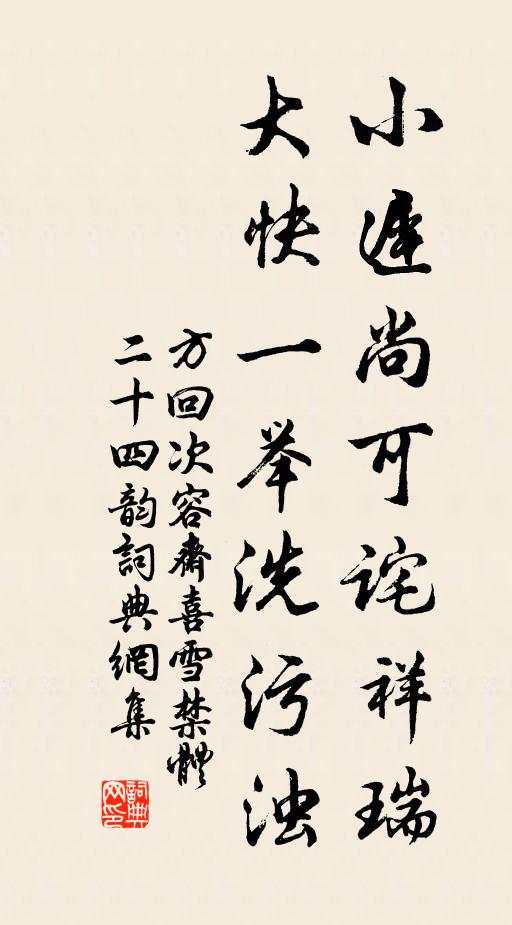 小遲尚可詫祥瑞
大快一举洗污浊
方回次容齋喜雪禁體
二十四韵詞典網集
詞典网印